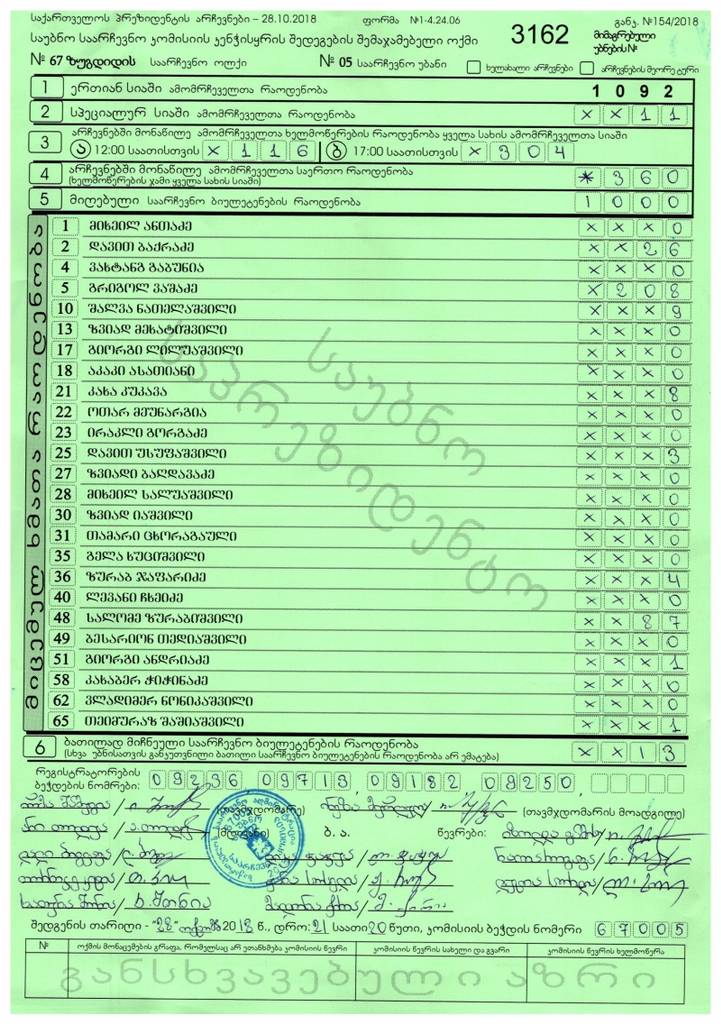 საქართველოს პრეზიდენტის არჩევნები – 28.10.2018 ფორმა №1-4.24.06 განკ. №154/2018
საუბნო საარჩევნო კომისიის კენჭისყრის შედეგების შემაჯამებელი ოქმი 3162 მიმაგრებული უბნების №
№ 67 ზუგდიდის საარჩევნო ოლქი № 05 საარჩევნო უბანი ხელახალი არჩევნები არჩევნების მეორე ტური
1 ერთიან სიაში ამომრჩეველთა რაოდენობა 1 0 9 2
2 სპეციალურ სიაში ამომრჩეველთა რაოდენობა × × 1 1
3 არჩევნებში მონაწილე ამომრჩეველთა ხელმოწერების რაოდენობა ყველა სახის ამომრჩეველთა სიაში
ა 12:00 საათისთვის × 1 1 6 ბ 17:00 საათისთვის × 3 0 4
4 არჩევნებში მონაწილე ამომრჩეველთა საერთო რაოდენობა * 3 6 0
(ხელმოწერების ჯამი ყველა სახის სიაში)
5 მიღებული საარჩევნო ბიულეტენების რაოდენობა 1 0 0 0
მიცემულ ხმათა რაოდენობა
1 მიხეილ ანთაძე × × × 0
2 დავით ბაქრაძე × × 2 6
4 ვახტანგ გაბუნია × × × 0
5 გრიგოლ ვაშაძე × 2 0 8
10 შალვა ნათელაშვილი × × × 9
13 ზვიად მეხატიშვილი × × × 0
17 გიორგი ლილუაშვილი × × × 0
18 აკაკი ასათიანი × × × 0
21 კახა კუკავა × × × 8
22 ოთარ მეუნარგია × × × 0
23 ირაკლი გორგაძე × × × 0
25 დავით უსუფაშვილი × × × 3
27 ზვიადი ბაღდავაძე × × × 0
28 მიხეილ სალუაშვილი × × × 0
30 ზვიად იაშვილი × × × 0
31 თამარი ცხორაგაული × × × 0
35 გელა ხუციშვილი × × × 0
36 ზურაბ ჯაფარიძე × × × 4
40 ლევანი ჩხეიძე × × × 0
48 სალომე ზურაბიშვილი × × 8 7
49 ბესარიონ თედიაშვილი × × × 0
51 გიორგი ანდრიაძე × × × 1
58 კახაბერ ჭიჭინაძე × × × 0
62 ვლადიმერ ნონიკაშვილი × × × 0
65 თეიმურაზ შაშიაშვილი × × × 1
საუბნო
საპრეზიდენტო
6 ბათილად მიჩნეული საარჩევნო ბიულეტენების რაოდენობა × × 1 3
(სხვა უბნისათვის განკუთვნილი ბათილი საარჩევნო ბიულეტენების რაოდენობა არ ემატება)
რეგისტრატორების
ბეჭდების ნომრები: 09236 09713 09182 09250
(თავმჯდომარე) (თავმჯდომარის მოადგილე)
(მდივანი) ბ. ა. წევრები:
შედგენის თარიღი - "28" 2018 წ., დრო: 21 საათი 20 წუთი, კომისიის ბეჭდის ნომერი 6 7 0 0 5
№ ოქმის მონაცემების გრაფა, რომელსაც არ ეთანხმება კომისიის წევრი კომისიის წევრის სახელი და გვარი კომისიის წევრის ხელმოწერა
განსხვავებული აზრი